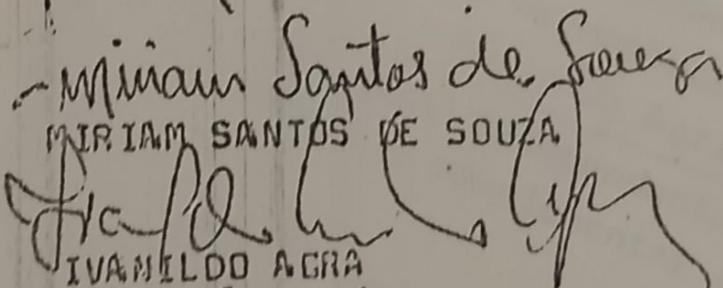 Miriam Santos de Souza
MIRIAM SANTOS DE SOUZA
IVANILDO AGRA